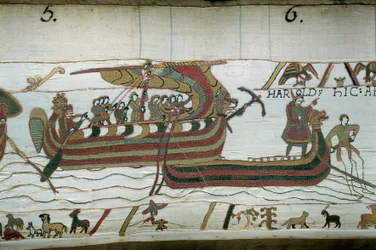 5.
6.
HAROLD: hIC: AP